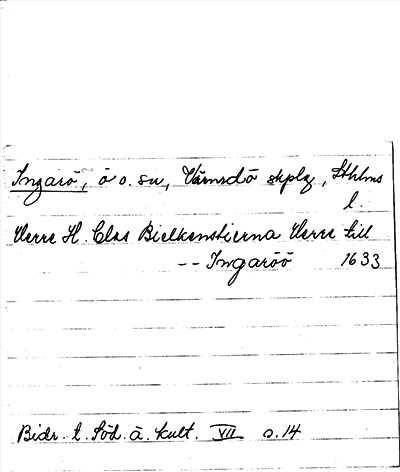 Ingarö, ö o. sn, Värmdö skplg, Sthlms
l.
Herre H. Clas Bielkenstierna Herre till
-- Ingaröö 1633
Bidr. t. Söd. ä. kult. VII s. 14